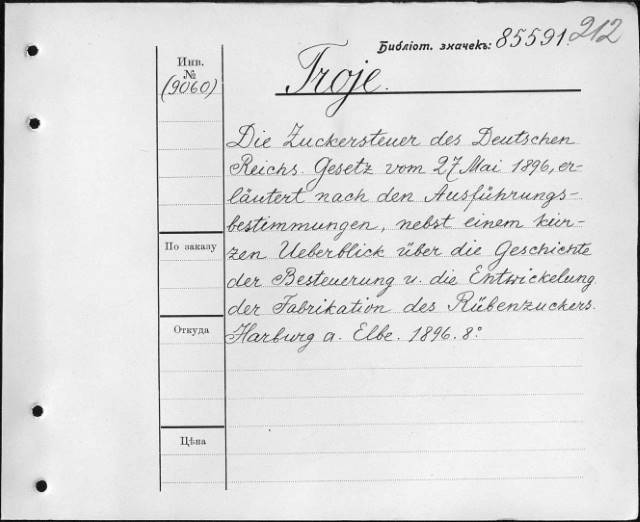 Библіот. значекъ: 85591. 212
Инв.
№
(9060)
Troje.
Die Zuckersteuer des Deutschen
Reichs. Gesetz vom 27 Mai 1896, er-
läutert nach den Ausführungs-
bestimmungen, nebst einem kur-
zen Ueberblick über die Geschichte
der Besteuerung u. die Entwickelung
der Fabrikation des Rübenzuckers.
Harburg a. Elbe. 1896. 8°
По заказу
Откуда
Цѣна